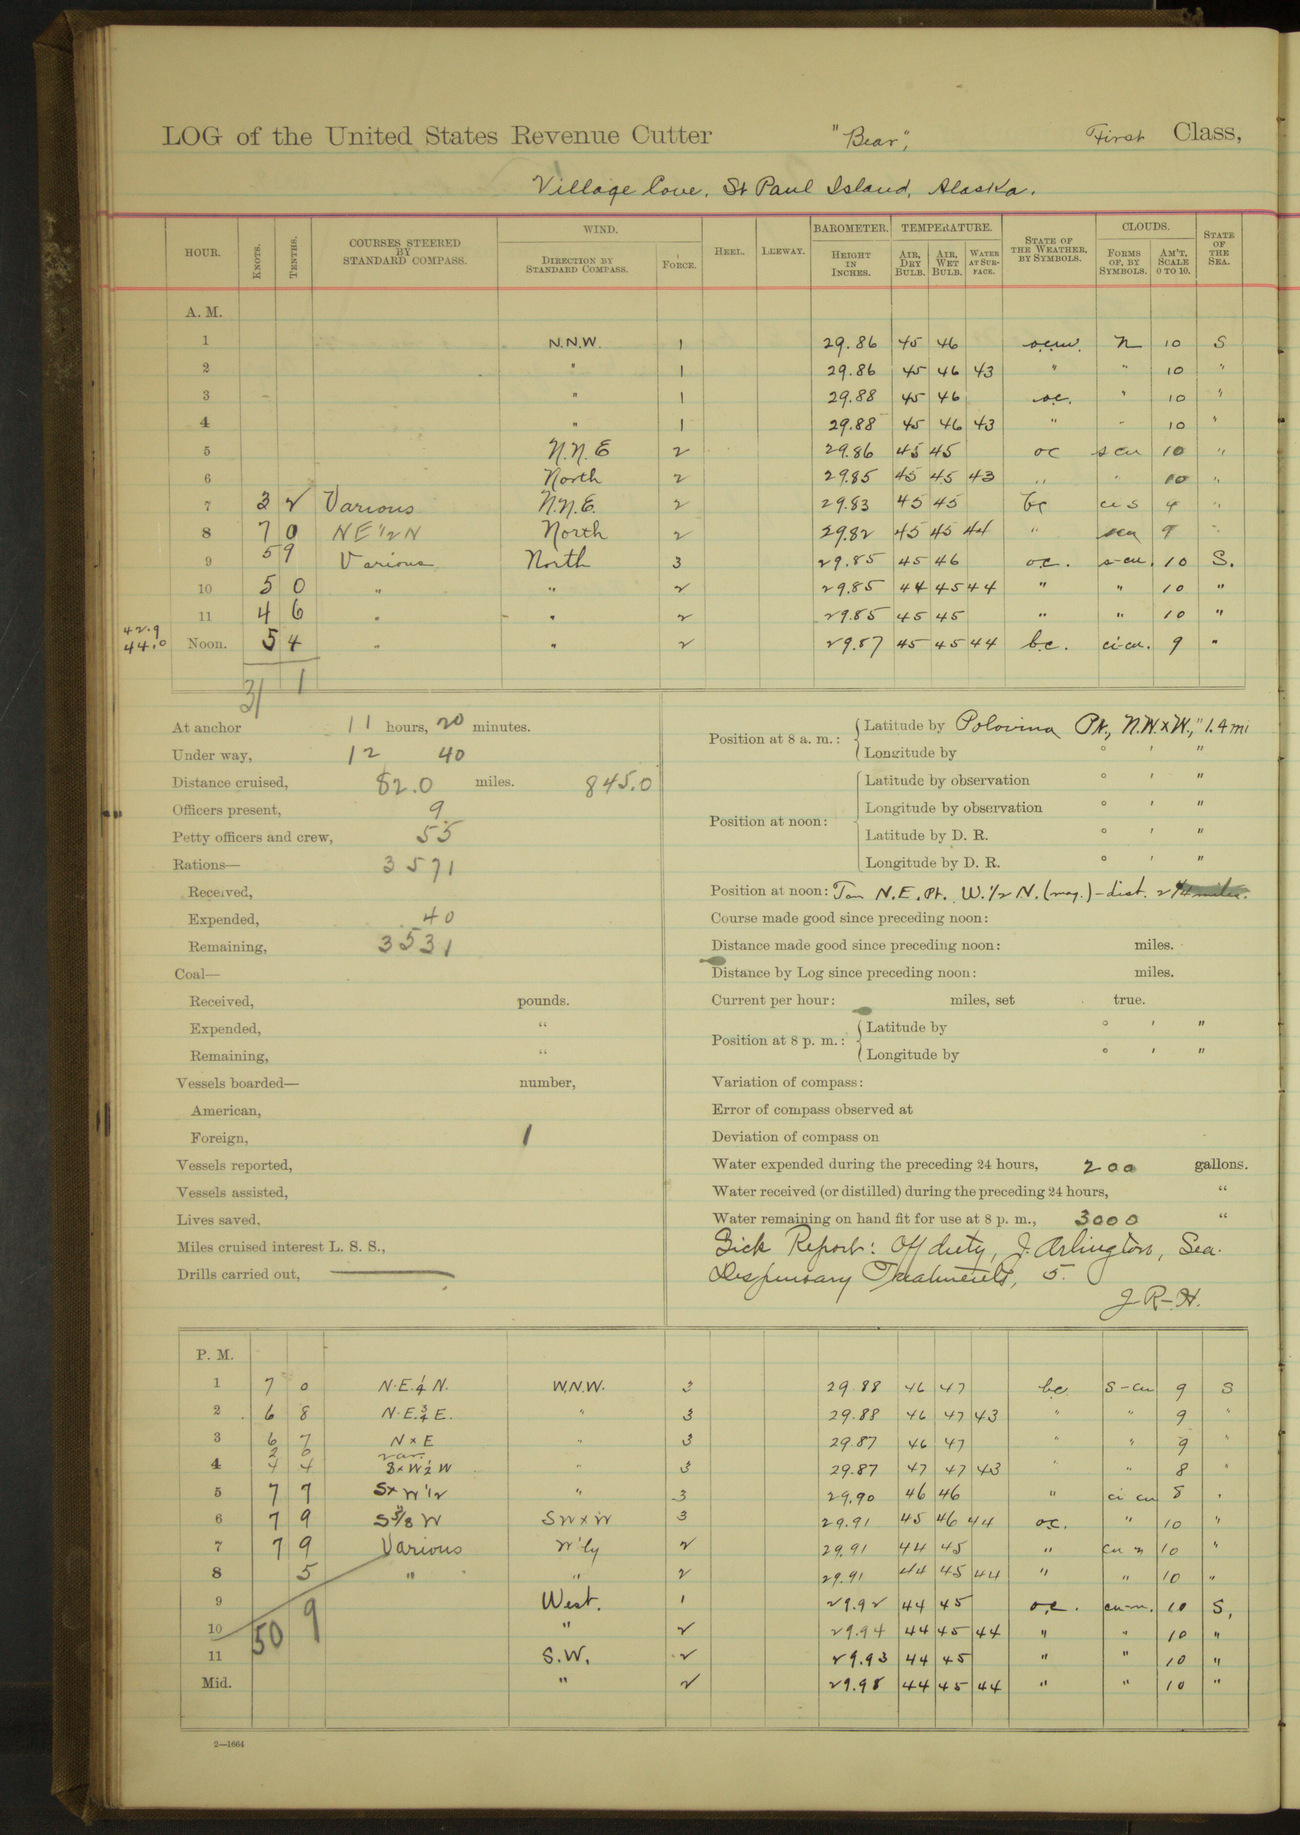 LOG of the United States Revenue Cutter "Bear", First Class,
Village Cove, St Paul Island, Alaska.
HOUR. KNOTS. TENTHS. COURSES STEERED BY STANDARD COMPASS. WIND. DIRECTION BY STANDARD COMPASS. FORCE. HEEL. LEEWAY. BAROMETER. HEIGHT IN INCHES. TEMPERATURE. AIR, DRY BULB. AIR, WET BULB. WATER AT SURFACE. STATE OF THE WEATHER, BY SYMBOLS. CLOUDS. FORMS OF, BY SYMBOLS. AM'T, SCALE 0 TO 10. STATE OF THE SEA.
A. M.
1 N.N.W. 1 29.86 45 46 n 10 S
2 " 1 29.86 45 46 43 " " 10 "
3 " 1 29.88 45 46 oc. " 10 "
4 " 1 29.88 45 46 43 " " 10 "
5 N.N.E 2 29.86 45 45 oc s cu 10 "
6 North 2 29.85 45 45 43 " " 10 "
7 3 2 Various N.N.E. 2 29.83 45 45 bc ci s 4 "
8 7 0 NE 1/2 N North 2 29.82 45 45 44 " scu 9 "
9 5 9 Various North 3 29.85 45 46 oc. s-cu. 10 S.
10 5 0 " " 2 29.85 44 45 44 " " 10 "
11 4 6 " " 2 29.85 45 45 " " 10 "
42.9
44.0 Noon. 5 4 " " 2 29.87 45 45 44 b.c. ci-cu. 9 "
31 1
At anchor 11 hours, 20 minutes.
Under way, 12 40
Distance cruised, 82.0 miles. 845.0
Officers present, 9
Petty officers and crew, 55
Rations— 3571
Received,
Expended, 40
Remaining, 3531
Coal—
Received, pounds.
Expended, "
Remaining, "
Vessels boarded— number,
American,
Foreign, 1
Vessels reported,
Vessels assisted,
Lives saved,
Miles cruised interest L. S. S.,
Drills carried out, ———
Position at 8 a. m.: Latitude by Polovina Pt., N.W.xW., " 1.4 mi
Longitude by ° ' "
Position at noon: Latitude by observation ° ' "
Longitude by observation ° ' "
Latitude by D. R. ° ' "
Longitude by D. R. ° ' "
Position at noon: N.E. Pt. W. 1/2 N. (mag.) - dist. 2 1/4 miles.
Course made good since preceding noon:
Distance made good since preceding noon: miles.
Distance by Log since preceding noon: miles.
Current per hour: miles, set true.
Position at 8 p. m.: Latitude by ° ' "
Longitude by ° ' "
Variation of compass:
Error of compass observed at
Deviation of compass on
Water expended during the preceding 24 hours, 200 gallons.
Water received (or distilled) during the preceding 24 hours, "
Water remaining on hand fit for use at 8 p. m., 3000 "
Sick Report: Off duty, J. Arlington, Sea.
Dispensary Treatments, 5.
J R-H.
P. M.
1 7 0 N.E. 1/4 N. W.N.W. 3 29.88 46 47 bc s-cu 9 S
2 6 8 N.E. 3/4 E. " 3 29.88 46 47 43 " " 9 "
3 6 7 N x E " 3 29.87 46 47 " " 9 "
2 0 var.
4 4 4 SxW 1/2 W " 3 29.87 47 47 43 " " 8 "
5 7 7 SxW 1/2 " 3 29.90 46 46 " ci cu 8 "
6 7 9 S 3/8 W SWxW 3 29.91 45 46 44 oc. " 10 "
7 7 9 Various W'ly 2 29.91 44 45 " cu n 10 "
8 5 " " 2 29.91 44 45 44 " " 10 "
9 West. 1 29.92 44 45 o.c. cu-n. 10 S,
10 " 2 29.94 44 45 44 " " 10 "
50 9
11 S.W. 2 29.93 44 45 " " 10 "
Mid. " 2 29.95 44 45 44 " " 10 "
2—1664